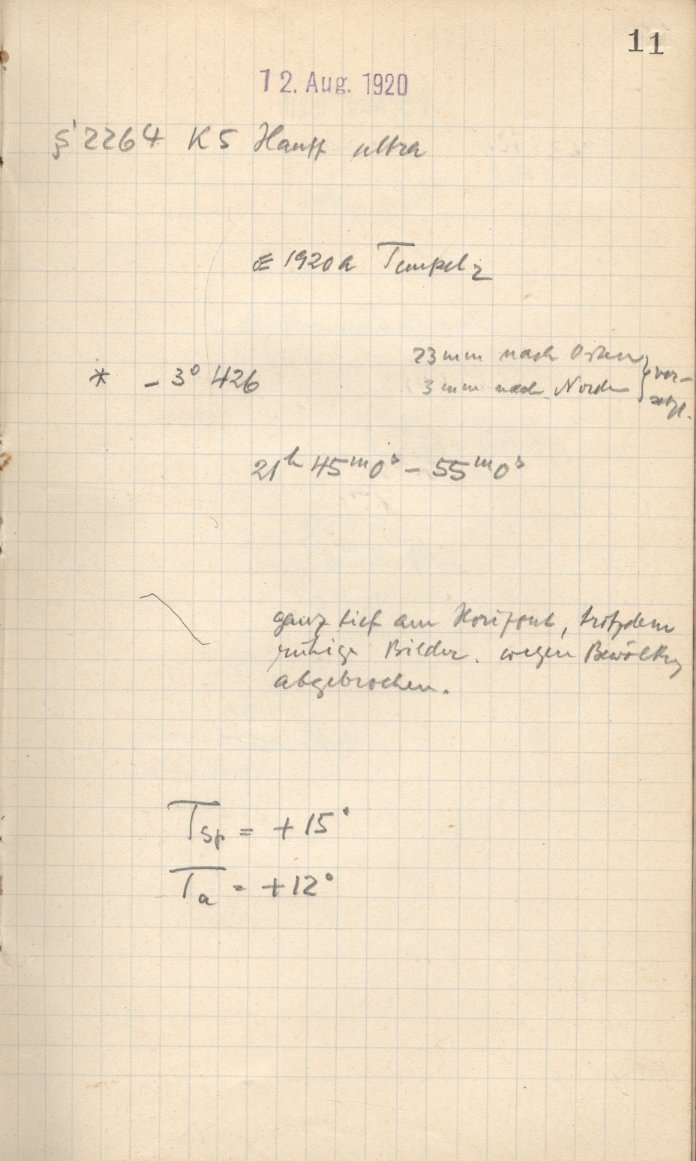 11
12. Aug. 1920
S 2264 K5 Hauff ultra
1920a Tempel 2
* - 3° 426
23 mm nach Osten
3 mm nach Norden } ver-
setzt.
21h 45m 0s - 55m 0s
ganz tief am Horizont, trotzdem
ruhige Bilder. wegen Bewölkg
abgebrochen.
TSp = +15°
Ta = +12°